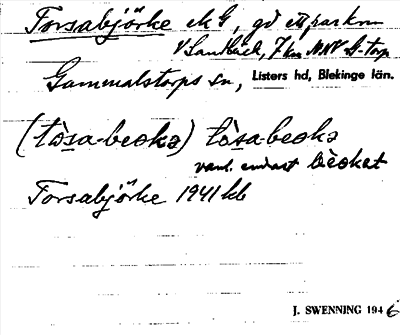 Forsabjörke ek G, gd ett par km
V Sandbäck, 7 km NNV G-torp
Gammalstorps sn, Listers hd, Blekinge län.
(tòsa-beoka) tòsa-beoka
vanl. endast bèoket
Forsabjörke 1941 kb
J. SWENNING 1946